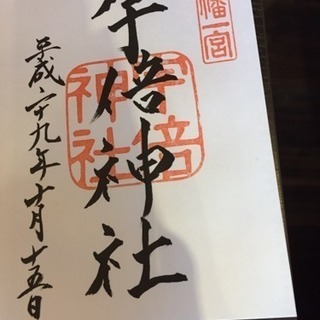 幡一宮
宇倍神社
宇倍神社
平成二十九年十月十五日